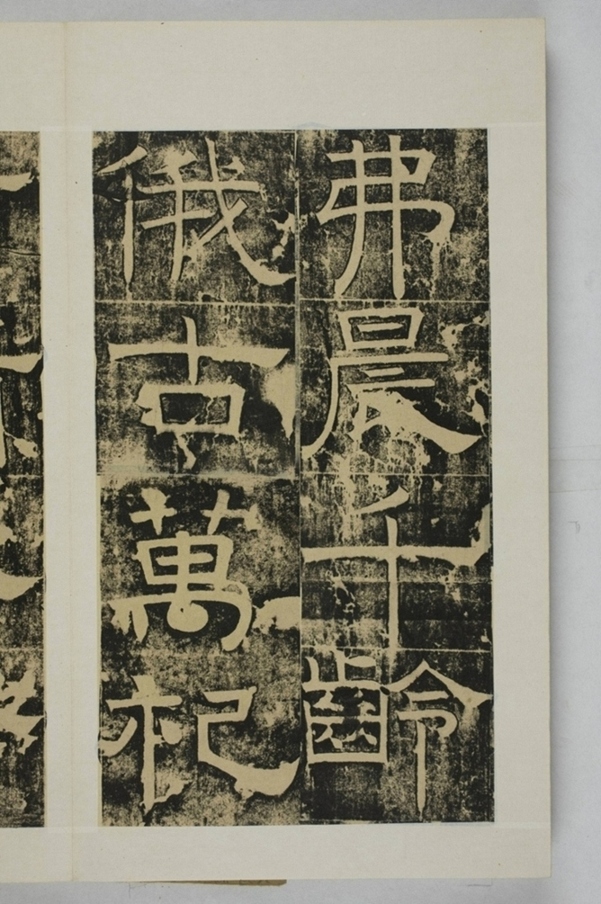 弗晨千齡
俄古萬祀